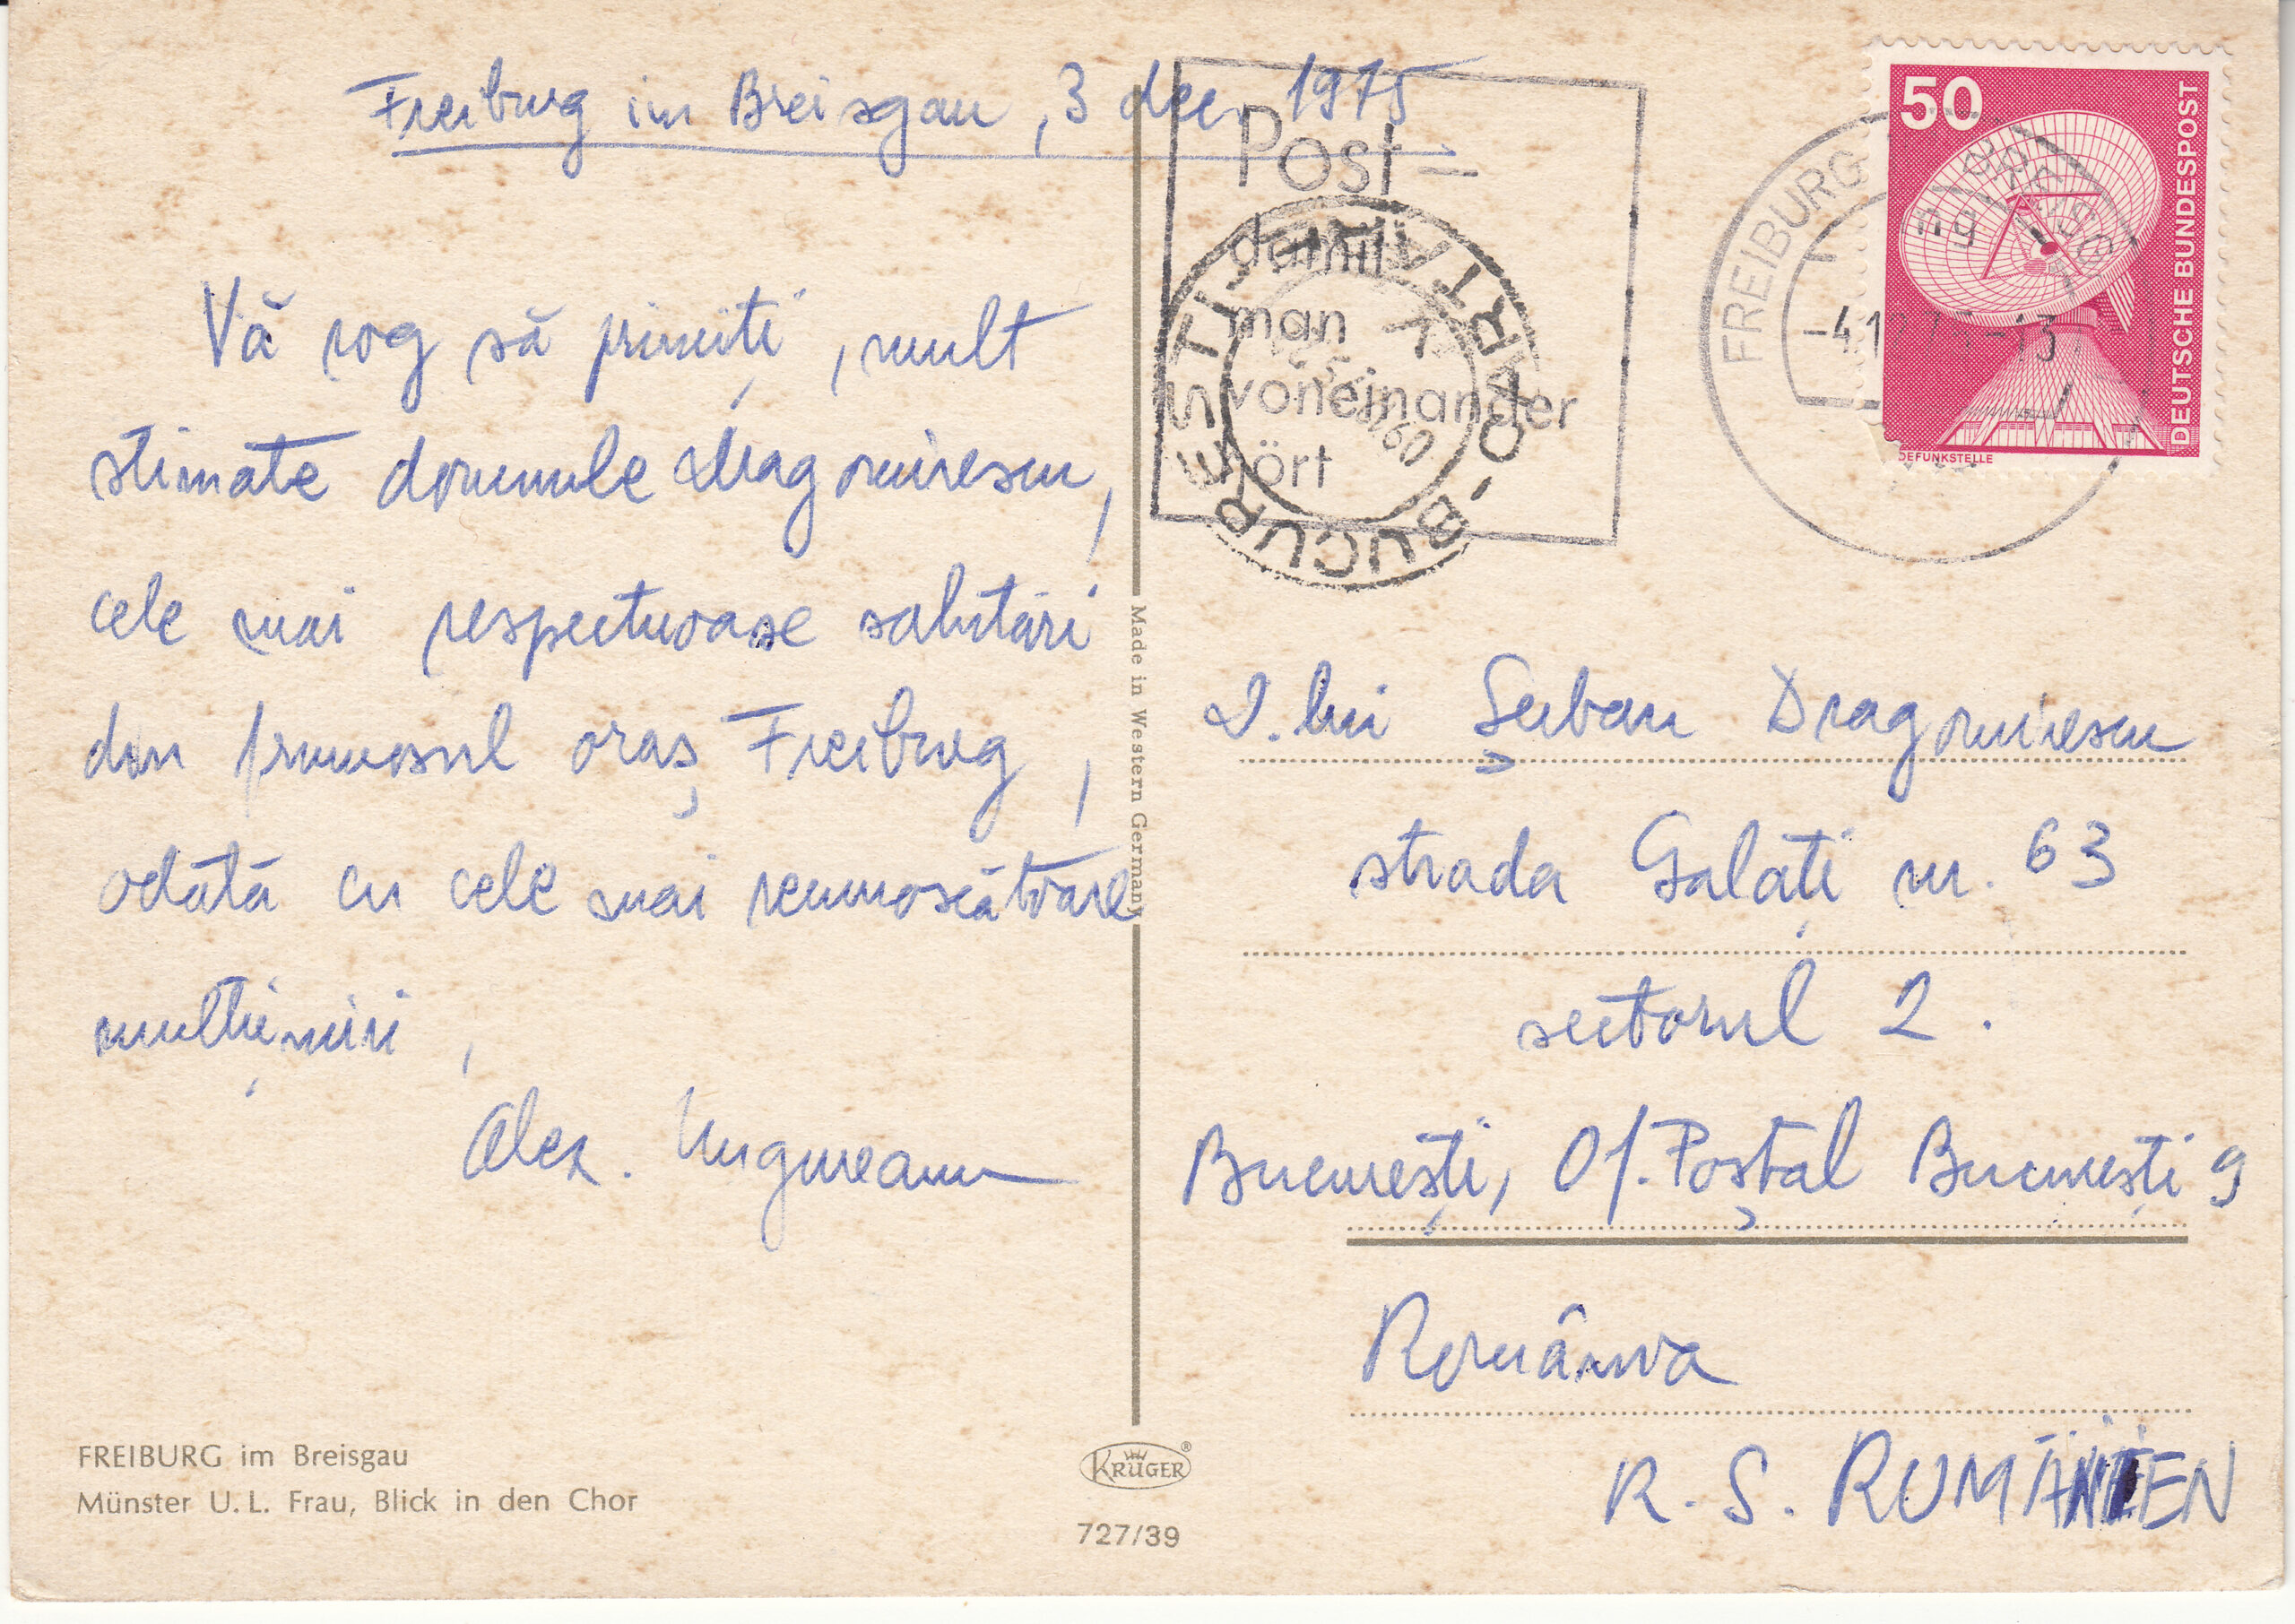 Freiburg im Breisgau, 3 dec. 1975
Vă rog să primiți, mult
stimate domnule Dragomirescu,
cele mai respectuoase salutări
din frumosul oraș Freiburg,
odată cu cele mai recunoscătoare
mulțumiri,
Alex. Ungureanu
FREIBURG im Breisgau
Münster U. L. Frau, Blick in den Chor
Made in Western Germany
KRÜGER®
727/39
Post -
damit
man
voneinander
hört
BUCUREȘTI
CARTARE
FREIBURG
-4.1
-13
50
DEUTSCHE BUNDESPOST
DEFUNKSTELLE
D. lui Șerban Dragomirescu
strada Galați nr. 63
sectorul 2.
București, Of. Poștal București 9
România
R. S. RUMÄNIEN